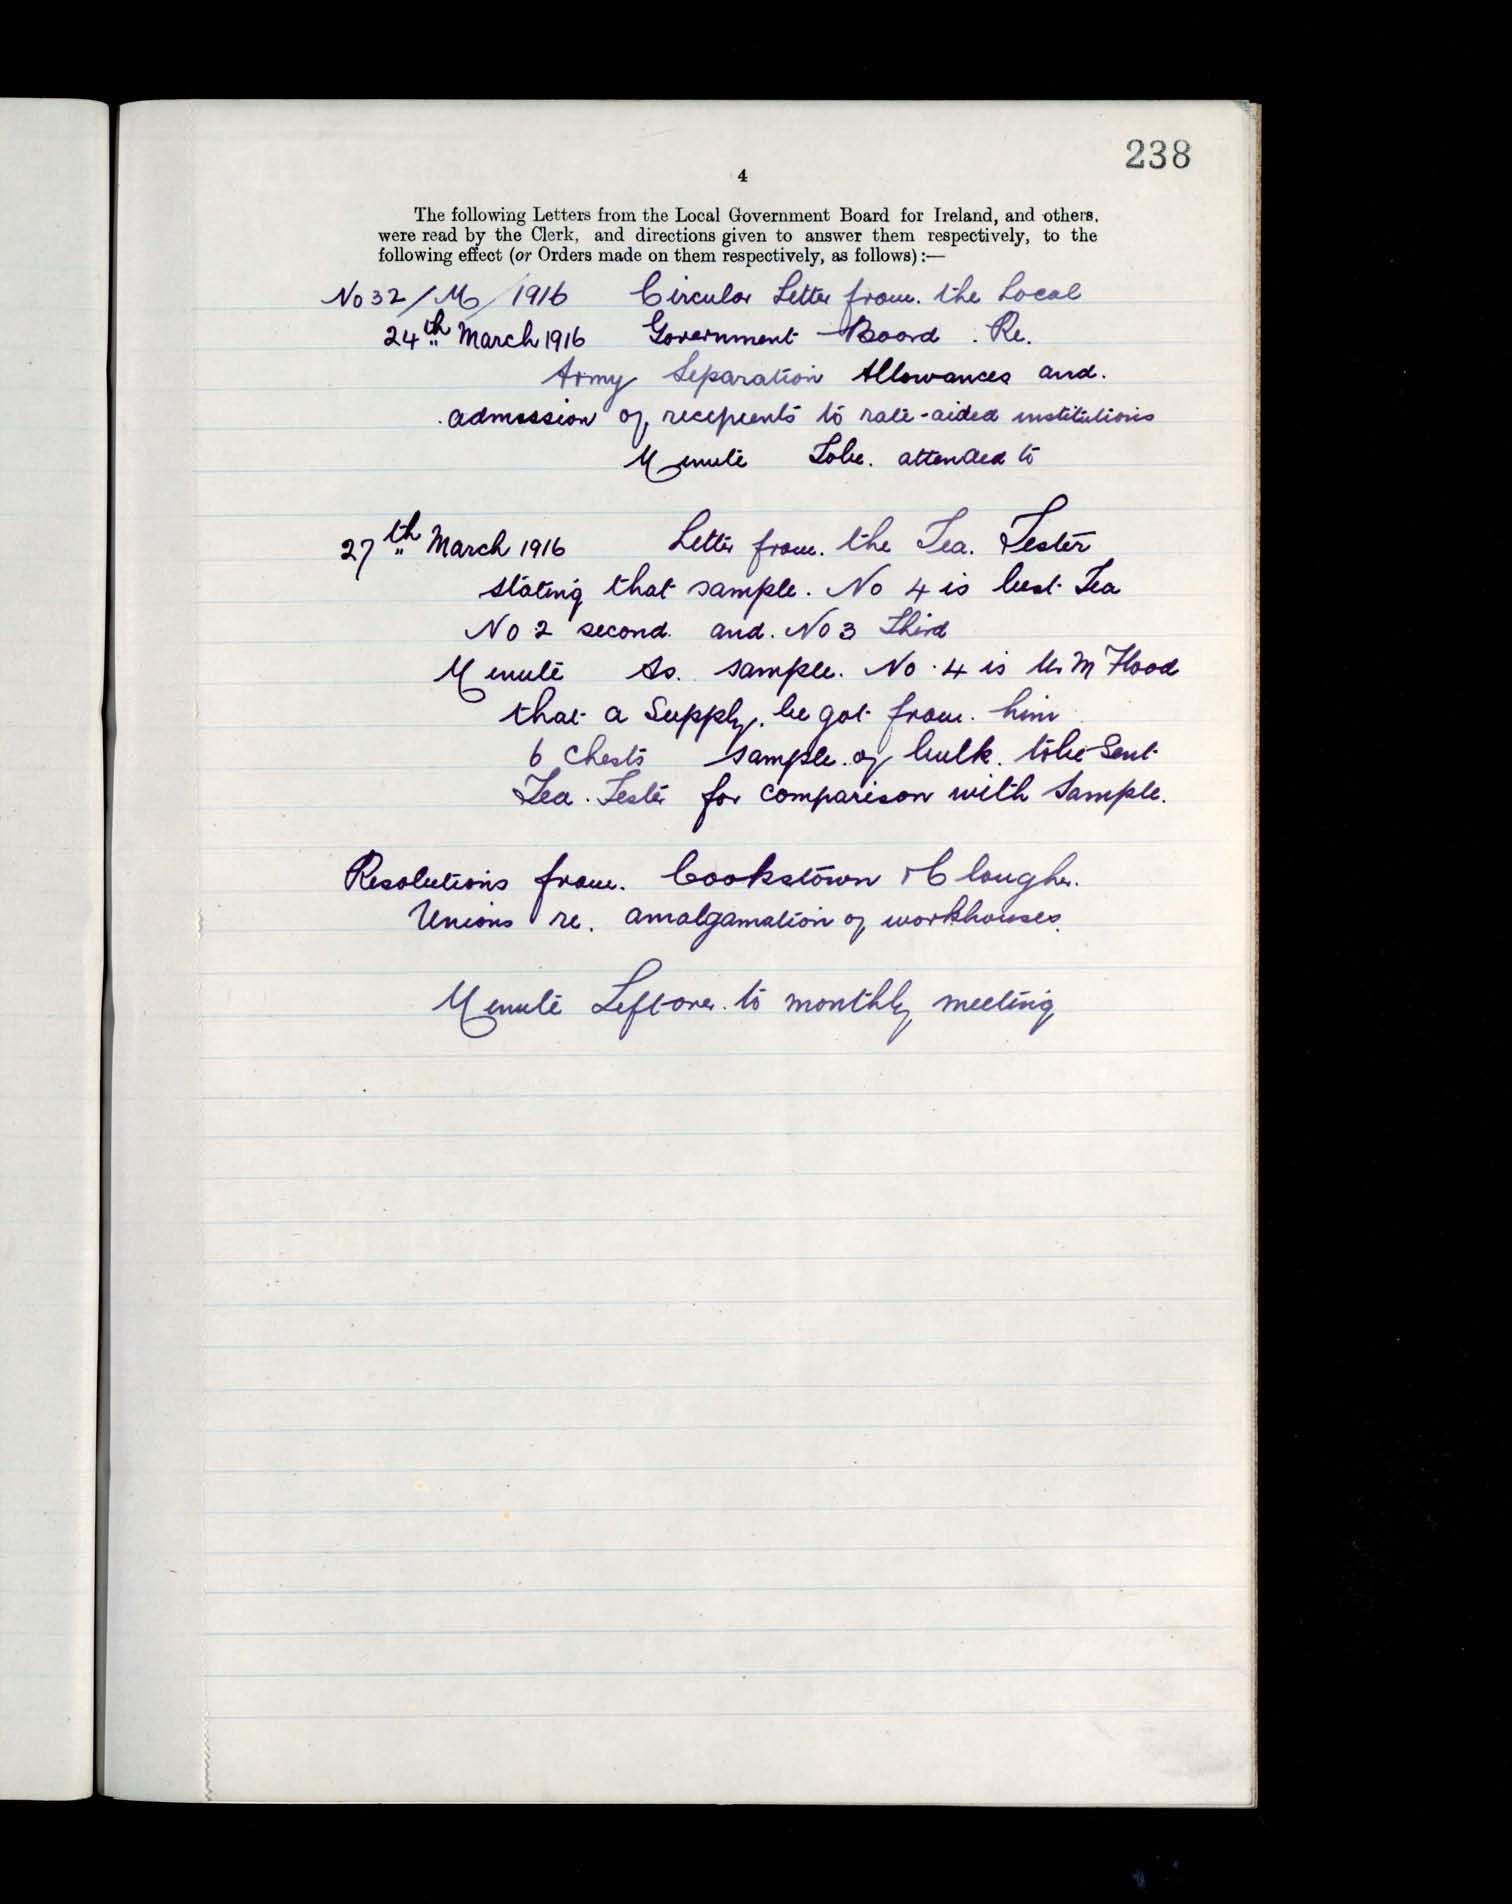 238
4
The following Letters from the Local Government Board for Ireland, and others,
were read by the Clerk, and directions given to answer them respectively, to the
following effect (or Orders made on them respectively, as follows):—
No 32/M/1916 Circular Letter from. the Local
24th March 1916 Government Board. Re.
Army Separation Allowances and.
admission of recipients to rate-aided institutions
Minute Tobe. attended to
27th March 1916 Letter from. the Tea. Tester
stating that sample. No 4 is best Tea
No 2 second. and. No 3 Third
Minute As. sample. No. 4 is Mr Flood
that a Supply. be got from. him
6 Chests sample. of bulk. tobe Sent
Tea. Tester for comparison with Sample.
Resolutions from. Cookstown & Clougher.
Unions re. amalgamation of workhouses.
Minute Left over. to monthly meeting